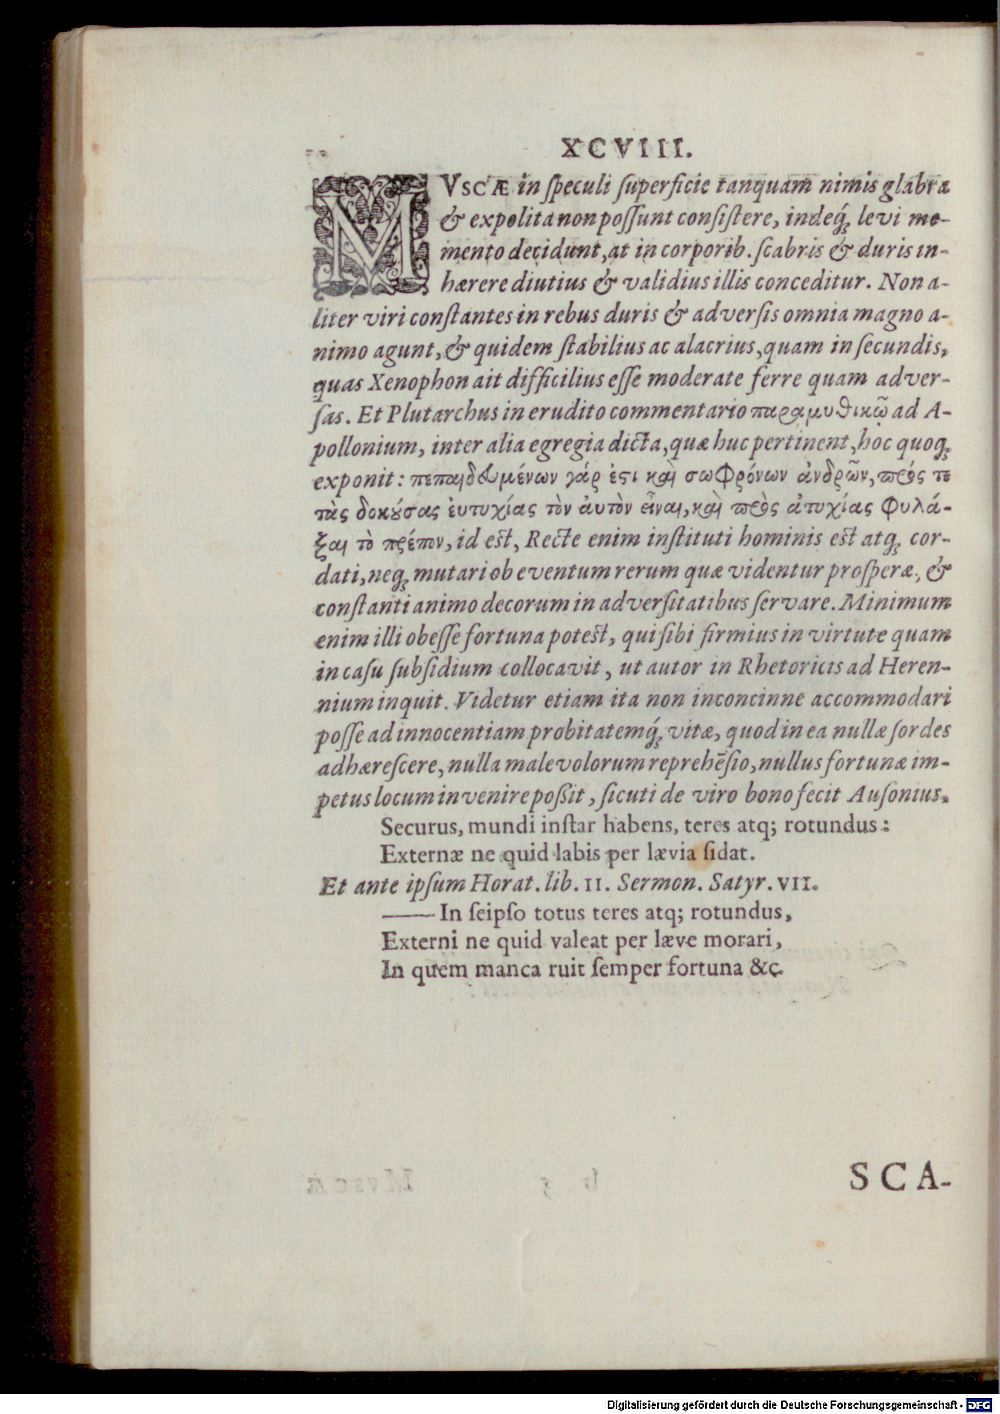 XCVIII.
MVSCÆ in speculi superficie tanquam nimis glabra
& expolita non possunt consistere, indeq́; levi mo-
mento decidunt, at in corporib. scabris & duris in-
hærere diutius & validius illis conceditur. Non a-
liter viri constantes in rebus duris & adversis omnia magno a-
nimo agunt, & quidem stabilius ac alacrius, quam in secundis,
quas Xenophon ait difficilius esse moderate ferre quam adver-
sas. Et Plutarchus in erudito commentario παραμυθικῷ ad A-
pollonium, inter alia egregia dicta, quæ huc pertinent, hoc quoq;
exponit: πεπαιδευμένων γάρ ἐστι καὶ σωφρόνων ἀνδρῶν, πρός τε
τὰς δοκούσας ἐυτυχίας τὸν ἀυτὸν εἶναι, καὶ πρὸς ἀτυχίας φυλά-
ξαι τὸ πρέπον, id est, Recte enim instituti hominis est atq; cor-
dati, neq; mutari ob eventum rerum quæ videntur prosperæ, &
constanti animo decorum in adversitatibus servare. Minimum
enim illi obesse fortuna potest, qui sibi firmius in virtute quam
in casu subsidium collocavit, ut autor in Rhetoricis ad Heren-
nium inquit. Videtur etiam ita non inconcinne accommodari
posse ad innocentiam probitatemq́; vitæ, quod in ea nullæ sordes
adhærescere, nulla malevolorum reprehēsio, nullus fortunæ im-
petus locum invenire poßit, sicuti de viro bono fecit Ausonius.
Securus, mundi instar habens, teres atq; rotundus:
Externæ ne quid labis per lævia sidat.
Et ante ipsum Horat. lib. II. Sermon. Satyr. VII.
—— In seipso totus teres atq; rotundus,
Externi ne quid valeat per læve morari,
In quem manca ruit semper fortuna &c.
SCA-
Digitalisierung gefördert durch die Deutsche Forschungsgemeinschaft - DFG